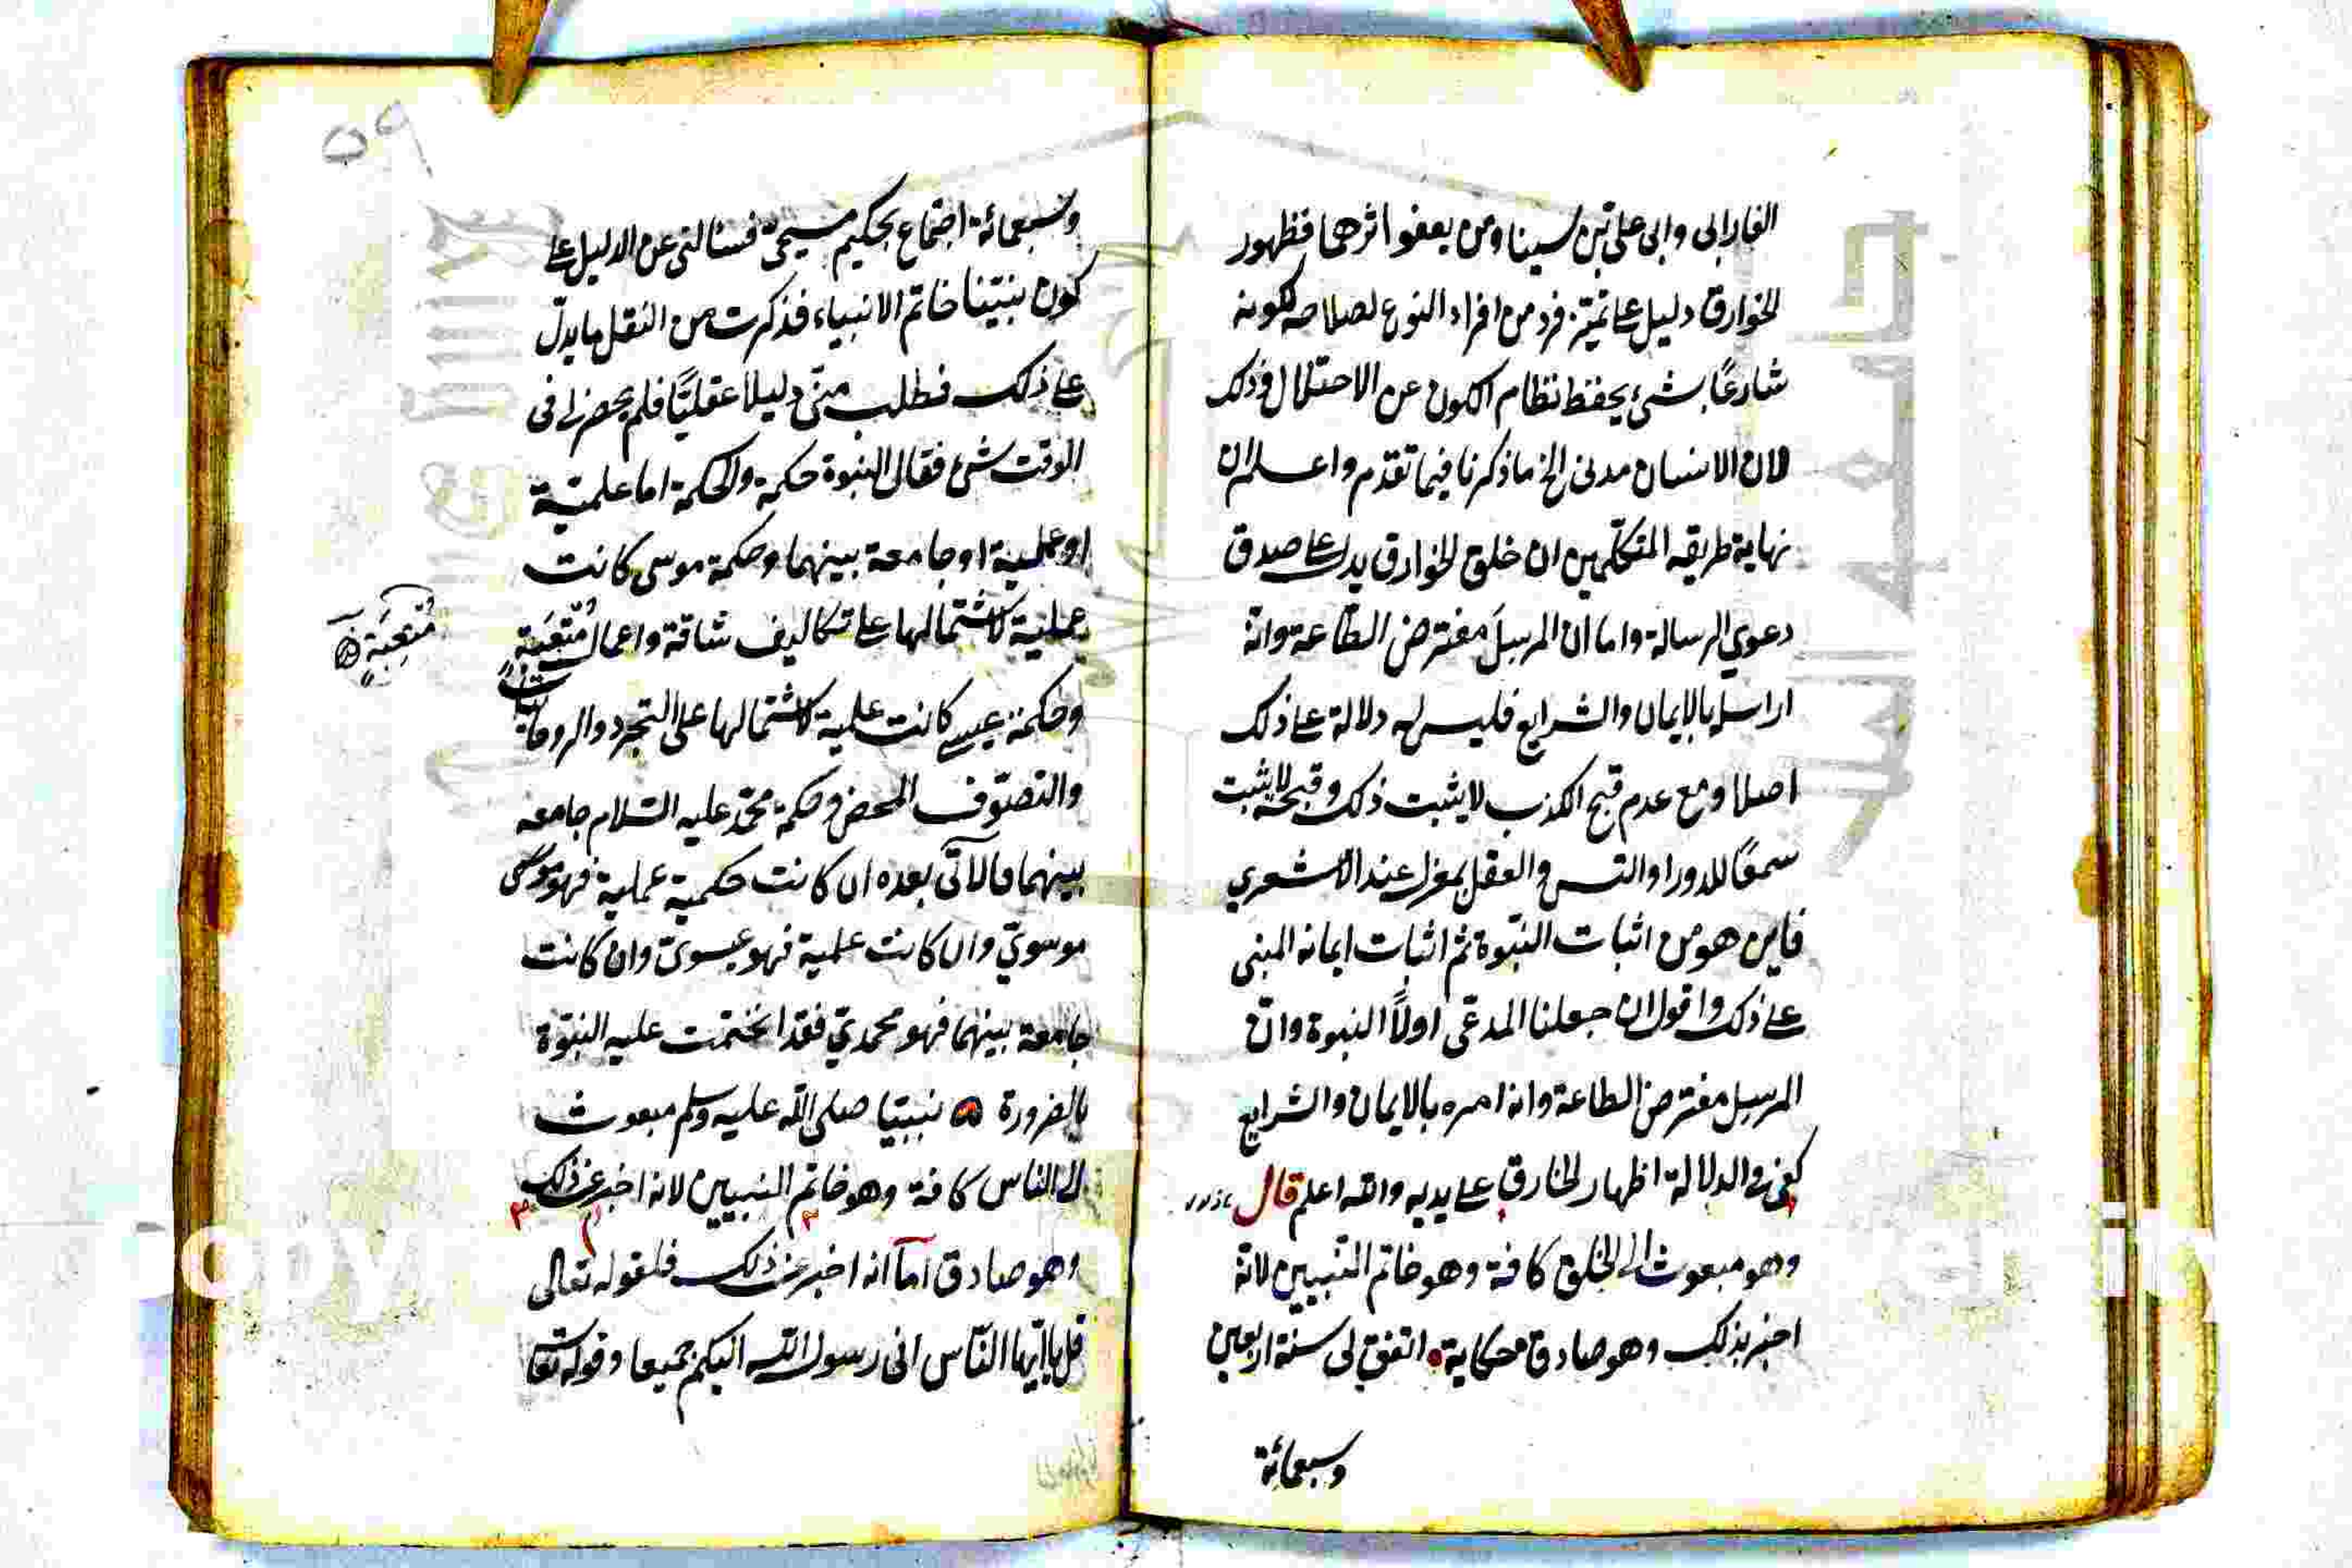 الفارابى وابى على بن سينا ومن يعفو اثرهما فظهور
الخوارق دليل على تميّز فرد من افراد النوع لصلاحه لكونه
شارعًا بشئ يحفظ نظام الكون عن الاختلال وذلك
لان الانسان مدنى الخ ما ذكرنا فيما تقدم واعلم ان
نهاية طريقه المتكلمين ان خلق الخوارق يدل على صدق
دعوي الرسالة واما ان المرسل مفترض الطاعة وانه
ارسل بالايمان والشرايع فليس له دلالة على ذلك
اصلا ومع عدم قبح الكذب لا يثبت ذلك وقبحه لا يثبت
سمعًا للدور او التس والعقل بمعزل عند الاشعري
فاين هو من اثبات النبوة ثم اثبات ايمانه المبنى
على ذلك واقول ان جعلنا المدعى اولًا النبوة وان
المرسل مفترض الطاعة وانه امره بالايمان والشرايع
كفى فى الدلالة اظهار الخارق على يديه والله اعلم قال
وهو مبعوث الى الخلق كافة وهو خاتم النبيين لانه
اخبر بذلك وهو صادق حكاية اتفق لى سنة اربعين
وسبعمائة
٥٩
وسبعمائة اجتماع بحكيم مسيحى فسئالنى عن الدليل على
كون نبيّنا خاتم الانبياء فذكرت من النقل ما يدلّ
على ذلك فطلب منّى دليلا عقليًا فلم يحضرنى فى
الوقت شئ فقال النبوة حكمة والحكمة اما علميّة
او عملية او جامعة بينهما وحكمة موسى كانت
عملية لاشتمالها على تكاليف شاقة واعمال مُتْعِبَة
مُتْعِبَةٍ
وحكمة عيسى كانت علمية لاشتمالها على التجرد والروحانيات
والتصوّف المحض وحكمة محمّد عليه السّلام جامعه
بينهما فالآتى بعده ان كانت حكمية عملية فهو موسى
موسويّ وان كانت علمية فهو عيسوىّ وان كانت
جامعة بينهما فهو محمديّ فقد اختتمت عليه النبوّة
بالضرورة نبيّنا صلى الله عليه وسلم مبعوث
الى الناس كافة وهو خاتم النبيين لانه اخبر عن ذلك
وهو صادق اما انه اخبر عن ذلك فلقوله تعالى
قل يا ايّها النّاس انى رسول الله اليكم جميعا وقوله تعا